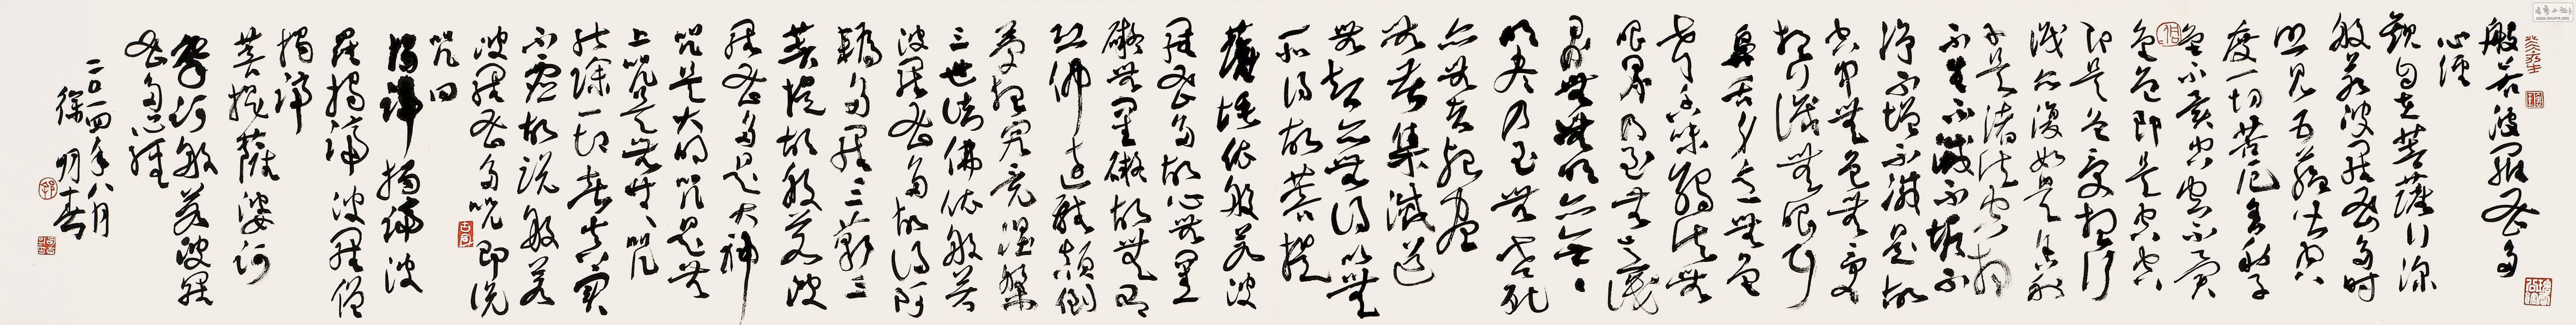 般若波羅蜜多
心經
觀自在菩薩行深
般若波羅蜜多時
照見五蘊皆空
度一切苦厄舍利子
色不異空空不異
色色即是空空
即是色受想行
識亦復如是舍利
子是諸法空相
不生不滅不垢不
淨不增不減是故
空中無色無受
想行識無眼耳
鼻舌身意無色
聲香味觸法無
眼界乃至無意識
界無無明亦無無
明盡乃至無老死
亦無老死盡
無苦集滅道
無智亦無得以無
所得故菩提
薩埵依般若波
羅蜜多故心無罣
礙無罣礙故無有
恐怖遠離顛倒
夢想究竟涅槃
三世諸佛依般若
波羅蜜多故得阿
耨多羅三藐三
菩提故般若波
羅蜜多是大神
咒是大明咒是無
上咒是無等等咒
能除一切苦真實
不虛故說般若
波羅蜜多咒即說
咒曰
揭諦揭諦波
羅揭諦波羅僧
揭諦
菩提薩婆訶
摩訶般若波羅
蜜多心經
二〇一四年八月
明春